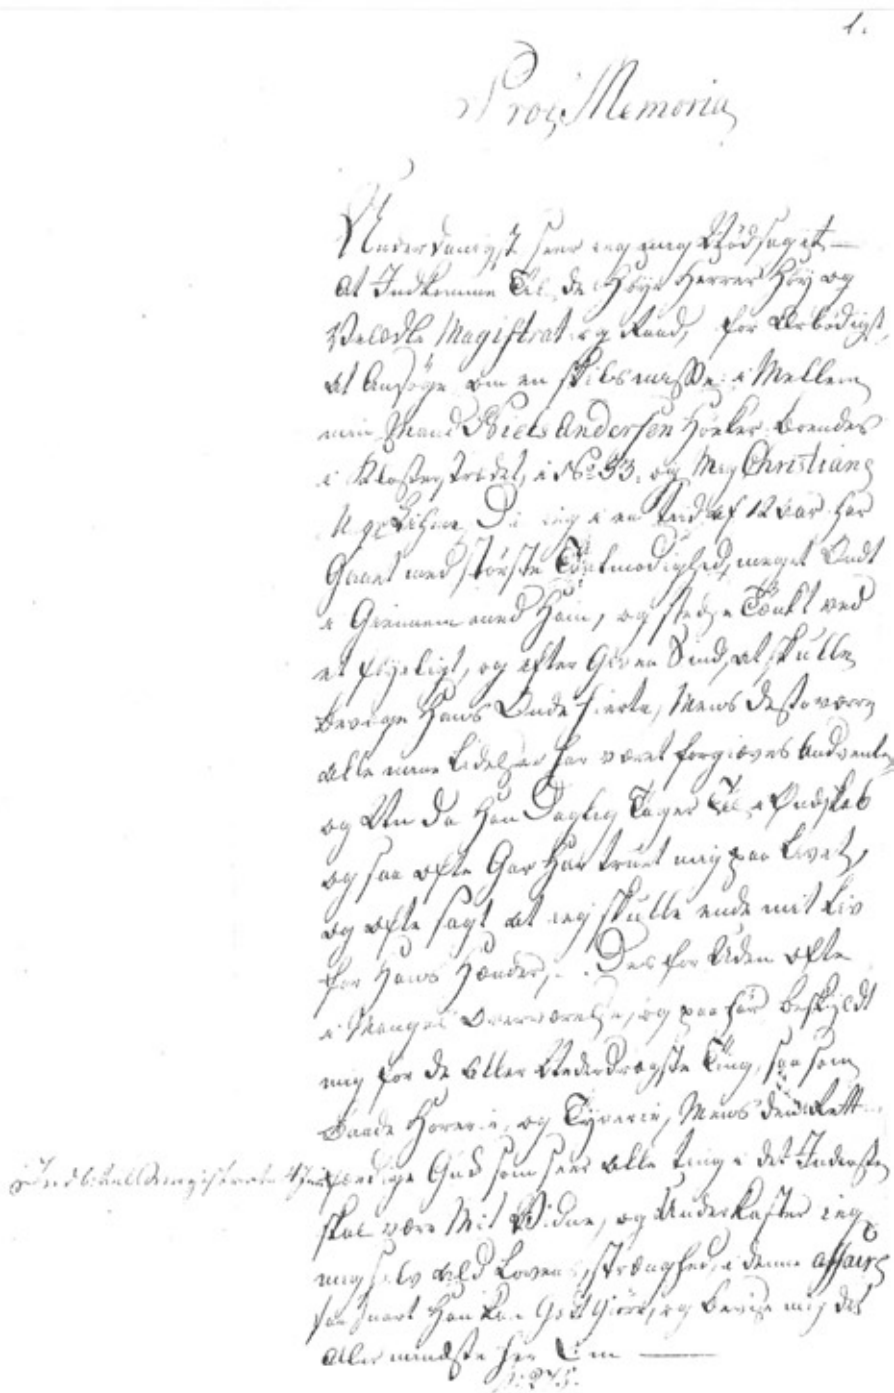 1.
Pro Memoria
Underdanigst seer ieg mig Nødsaget
at Indkomme Til de Høye Herrer Høy og
Velædle Magistrat og Raad, for Ærbødigst
at Ansøge om en skilsmasse i Mellem
min Mand Niels Andersen Høker boendes
i Klosterstrædet, i No 33. og Mig Christiane
Da ieg i en Tiid af 12 aar har
Gaaet med største Taalmodighed, meget Ondt
i Giennem med Ham, og stedse Tænkt ved
et føyeligt, og efter Given Sind, at skulle
bevæge Hans Onde Hierte, Mens desto værre
alle mine Lidelser har været forgieves Andvente
og Nu da Han Daglig Tager Til i Ondskab
og saa ofte Har truet mig paa Livet,
og ofte sagt at ieg skulle ende mit Liv
for Hans Hænder, Des for Uden ofte
i Manges Overværelse, og paahør beskyldt
mig for de aller Nederdragste Ting, saa som
baade Horerie, og Tyverie, Mens den Rett-
færdige Gud som seer alle ting i det Inderste
skal være Mit Vidne, og Underkaster ieg
mig selv ald Lovens strænghed, i denne affaire
saa snart Han kan Godtgiøre, og bevise mig det
aller mindste her Om